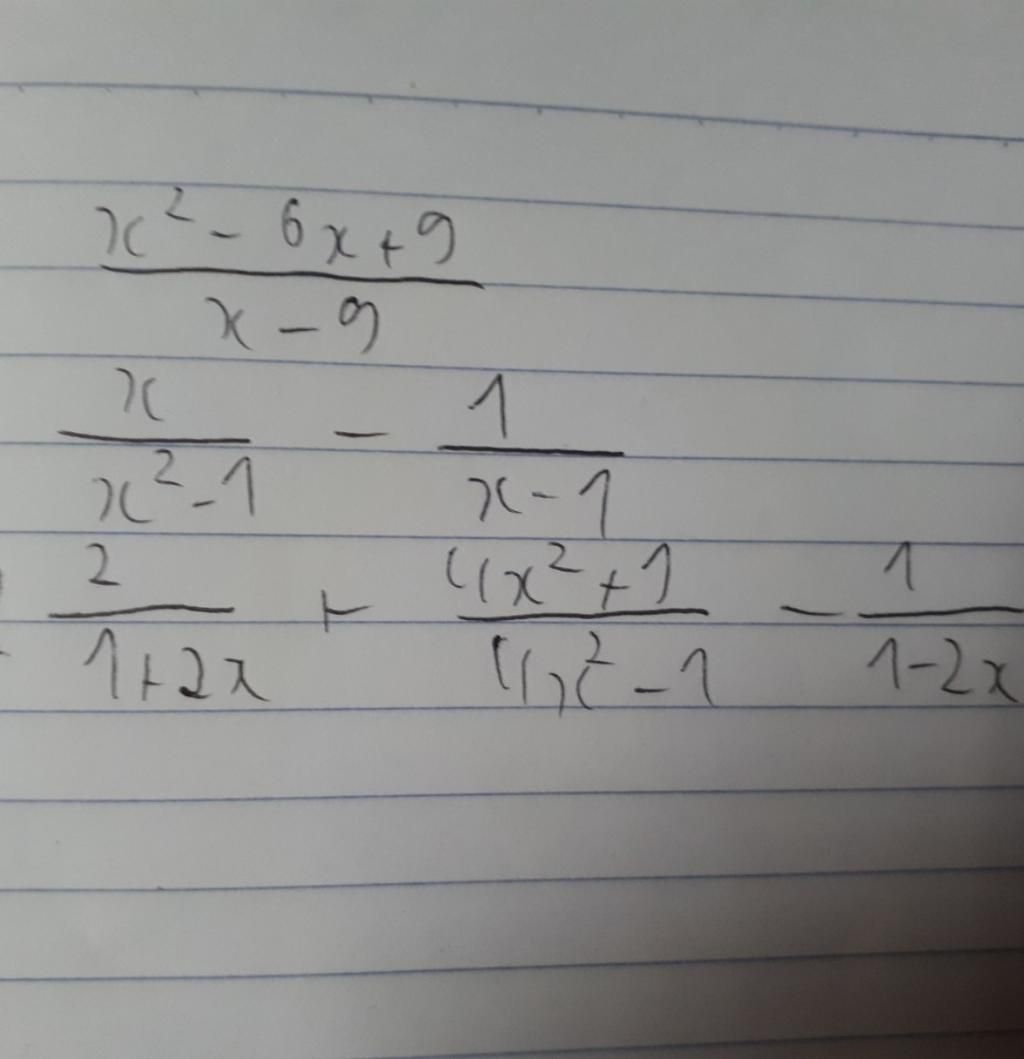 x² - 6x + 9
x - 9
x / x² - 1 - 1 / x - 1
2 / 1 + 2x + 4x² + 1 / 4x² - 1 - 1 / 1 - 2x